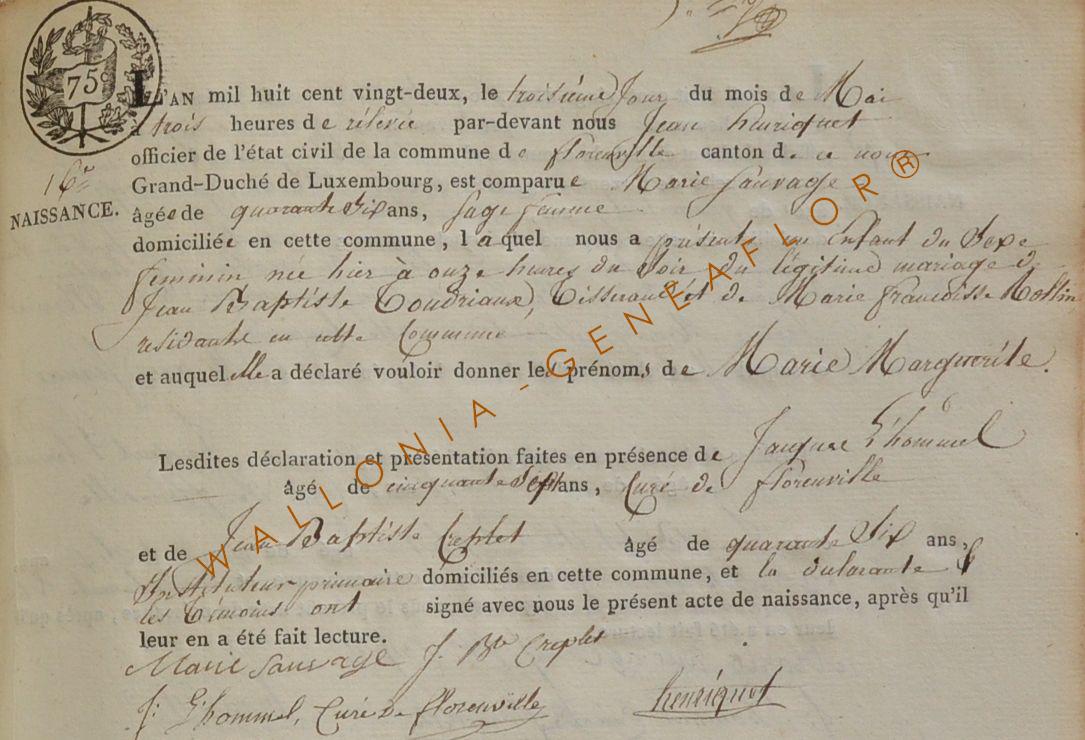 75
L'AN mil huit cent vingt-deux, le troisième Jour du mois de Mai
à trois heures de rélevée par-devant nous Jean henriquet
officier de l'état civil de la commune de florenville canton de ce nom
16e
Grand-Duché de Luxembourg, est comparue Marie Sauvage
NAISSANCE.
âgée de quarante Six ans, Sage femme
domiciliée en cette commune, laquel nous a présenté un Enfant du Sexe
feminin née hier à onze heures du Soir du légitime mariage de
Jean Baptiste Toudriaux, Tisserand et de Marie françoisse
residants en cette Commune
et auquel elle a déclaré vouloir donner les prénoms de Marie Marguerite.
Lesdites déclaration et présentation faites en présence de Jacques L'hommel
âgé de cinquante Sept ans, Curé de florenville
et de Jean Baptiste Creplet âgé de quarante Six ans,
Instituteur primaire domiciliés en cette commune, et la déclarante &
les témoins ont signé avec nous le présent acte de naissance, après qu'il
leur en a été fait lecture.
Marie Sauvage J. Bte Creplet
J: L'hommel, Curé de florenville henriquet
WALLONIA - GENEAFLOR®